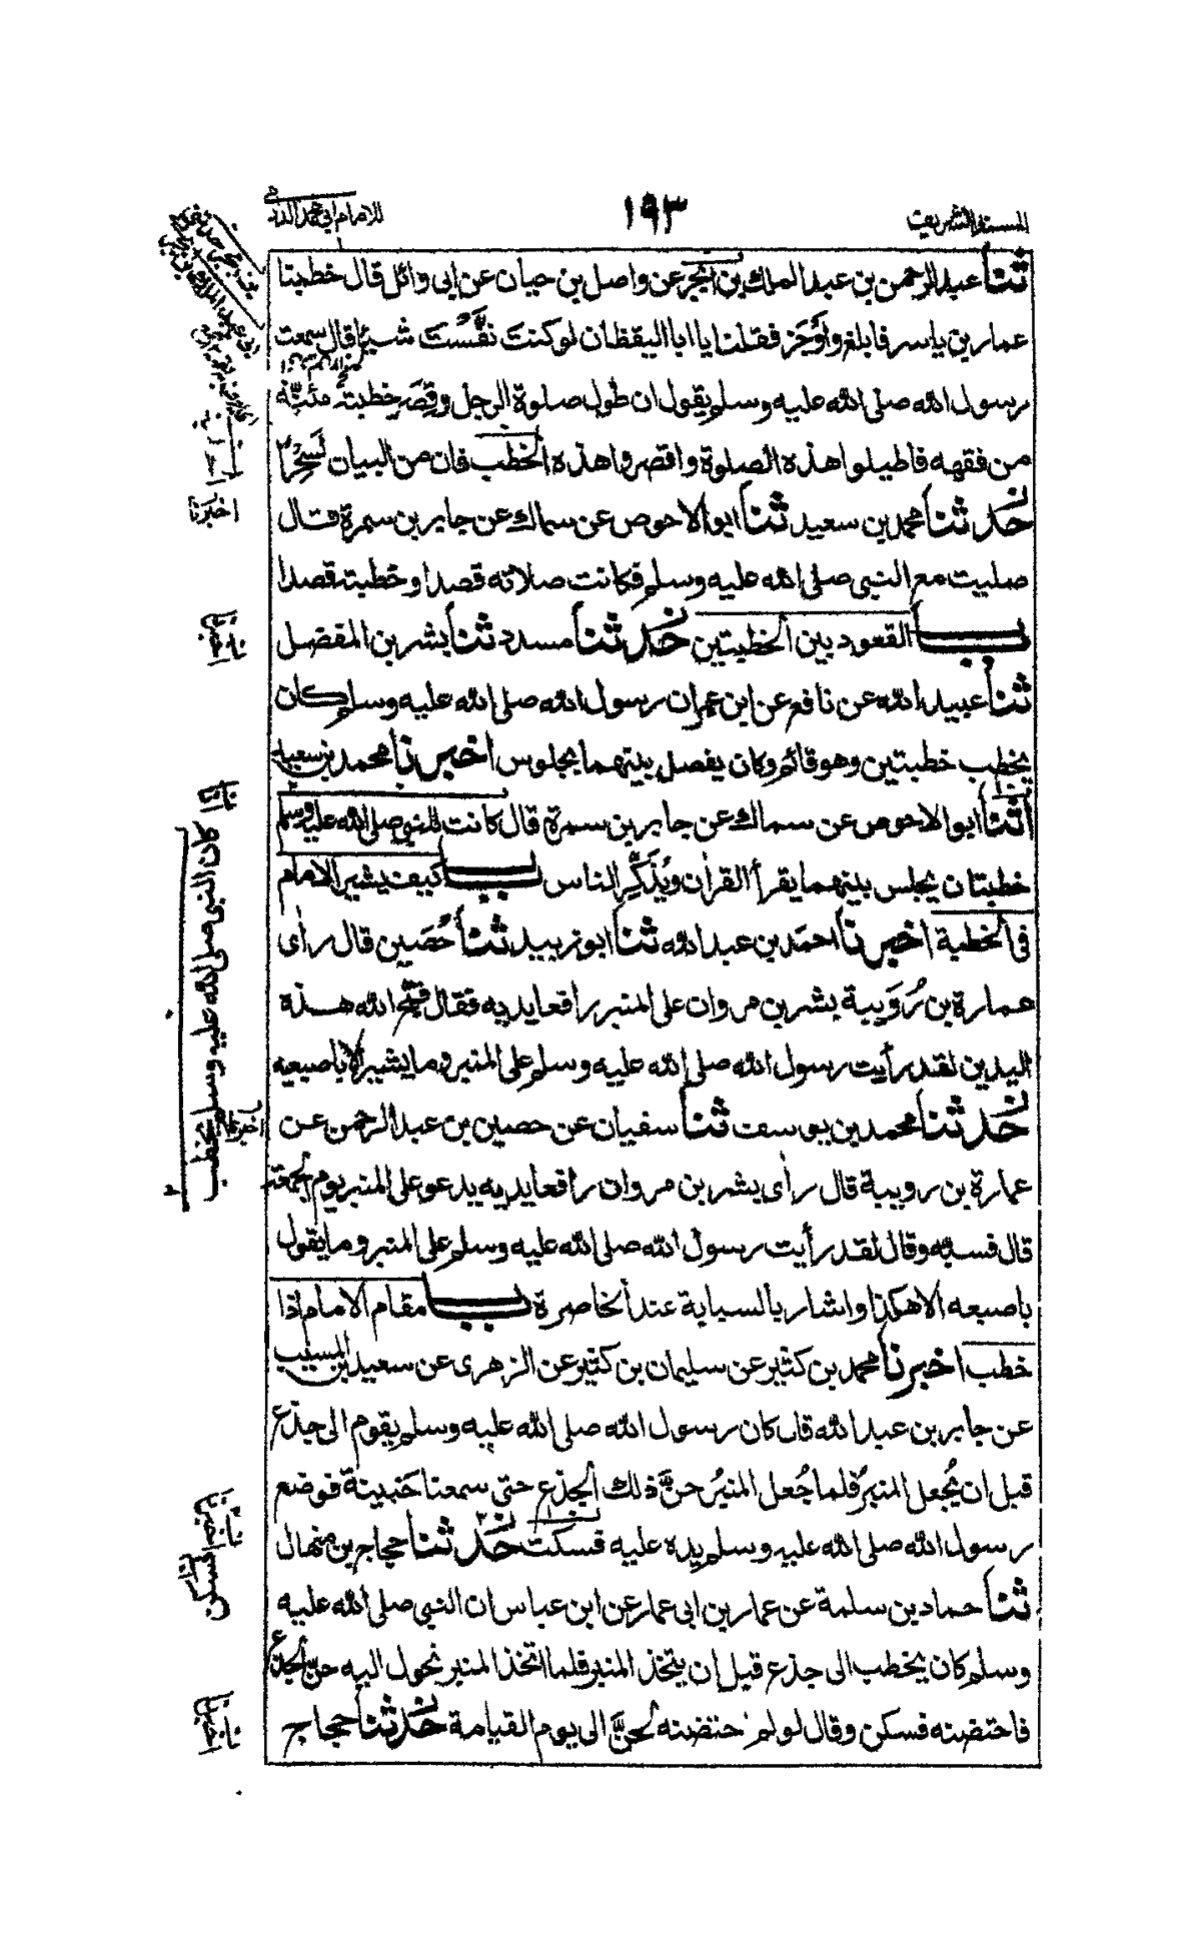 المسند الشريف
١٩٣
للامام ابي محمد الدارمي
ثنا عبد الرحمن بن عبد الملك بن ابجر عن واصل بن حيان عن ابى وائل قال خطبنا
عمار بن ياسر فابلغ واَوْجَز فقلنا يا ابا اليقظان لو كنت نَفَّسْتَ شيئا قال سمعت
رسول الله صلى الله عليه وسلم يقول ان طول صلوة الرجل وقِصَر خطبته مئنّة
من فقهه فاطيلوا هذه الصلوة واقصروا هذه الخطب فان من البيان لَسِحْرًا
حَدثنا محمد بن سعيد ثنا ابو الاحوص عن سماك عن جابر بن سمرة قال
صليت مع النبى صلى الله عليه وسلم فكانت صلاته قصدا وخطبته قصدا
باب القعود بين الخطبتين حَدثنا مسدد ثنا بشر بن المفضل
ثنا عبيد الله عن نافع عن ابن عمر ان رسول الله صلى الله عليه وسلم كان
يخطب خطبتين وهو قائم وكان يفصل بينهما بجلوس اخبرنا محمد بن سعيد
ثنا ابو الاحوص عن سماك عن جابر بن سمرة قال كانت للنبي صلى الله عليه وسلم
خطبتان يجلس بينهما يقرأ القرأن ويُذَكِّر الناس باب كيف يشير الامام
فى الخطبة اخبرنا احمد بن عبد الله ثنا ابو زبيد ثنا حُصَين قال رأى
عمارة بن رُوَيبة بشر بن مروان على المنبر رافعا يديه فقال قبّح الله هذه
اليدين لقد رأيت رسول الله صلى الله عليه وسلم على المنبر وما يشير الا باصبعه
حَدثنا محمد بن يوسف ثنا سفيان عن حصين بن عبد الرحمن عن
عمارة بن رويبة قال رأى بشر بن مروان رافعا يديه يدعو على المنبر يوم الجمعة
قال فسبّه وقال لقد رأيت رسول الله صلى الله عليه وسلم على المنبر وما يقول
باصبعه الا هكذا واشار بالسبابة عند الخاصرة باب مقام الامام اذا
خطب اخبرنا محمد بن كثير عن سليمان بن كثير عن الزهرى عن سعيد بن المسيب
عن جابر بن عبد الله قال كان رسول الله صلى الله عليه وسلم يقوم الى جذع
قبل ان يُجعل المنبرُ فلما جُعل المنبرُ حنَّ ذلك الجذع حتى سمعنا حَنينه فوضع
رسول الله صلى الله عليه وسلم يده عليه فسكت حَدثنا حجاج بن منهال
ثنا حماد بن سلمة عن عمار بن ابى عمار عن ابن عباس ان النبي صلى الله عليه
وسلم كان يخطب الى جذع قبل ان يتخذ المنبر فلما اتخذ المنبر تحول اليه حنّ الجذع
فاحتضنه فسكن وقال لو لم احتضنه لحنَّ الى يوم القيامة حَدثنا حجاج
اخبرنا
كان النبى صلى الله عليه وسلم يخطب